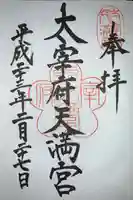 奉拝
太宰府天満宮
平成二十一年二月二十七日